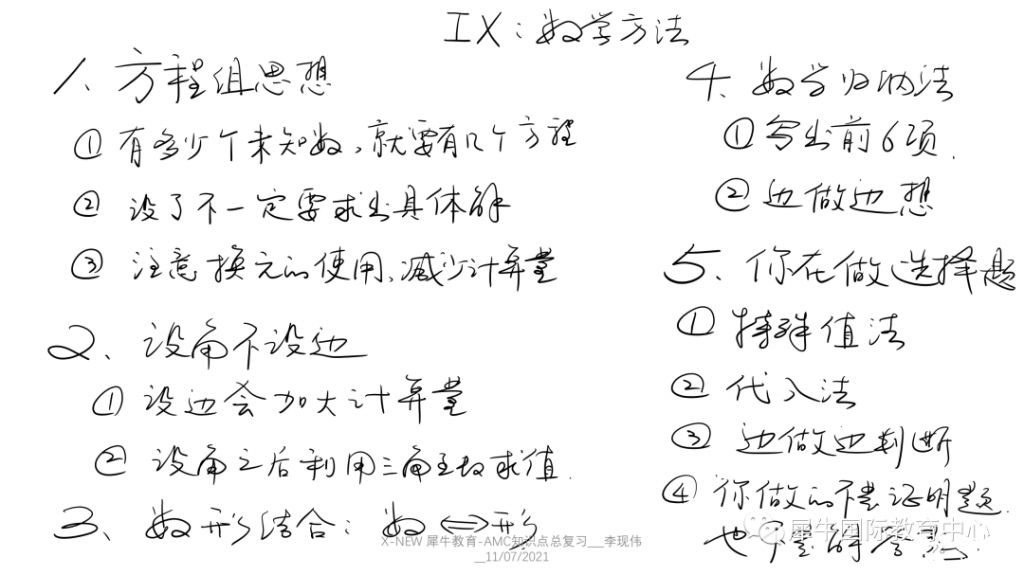 IX：数学方法
1、方程组思想
① 有多少个未知数，就要有几个方程
② 设了不一定要求出具体解
③ 注意换元的使用、减少计算量
2、设角不设边
① 设边会加大计算量
② 设角之后利用三角函数求值.
3、数形结合：数⇔形
4、数学归纳法
① 写出前6项.
② 边做边想
5、你在做选择题
① 特殊值法
② 代入法
③ 边做边判断
④ 你做的不是证明题.
也不是解答题
犀牛国际教育中心
X-NEW 犀牛教育-AMC知识点总复习__李现伟
__11/07/2021